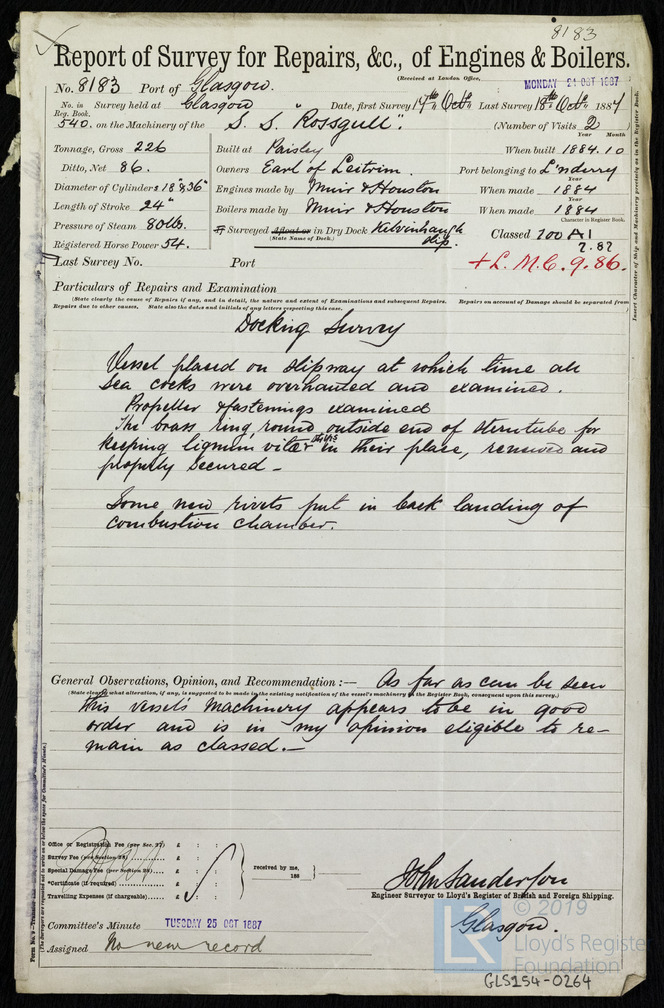 8183
Report of Survey for Repairs, &c., of Engines & Boilers.
(Received at London Office, MONDAY 24 OCT 1887
No. 8183 Port of Glasgow.
No. in Reg. Book. Survey held at Glasgow Date, first Survey 17th Octr Last Survey 18th Octr 1887
540. on the Machinery of the S. S. "Rossgull". (Number of Visits 2)
Year Month
Tonnage, Gross 226 Built at Paisley When built 1884.10
Ditto, Net 86. Owners Earl of Leitrim. Port belonging to L'nderry
Year
Diameter of Cylinders 18" & 36" Engines made by Muir & Houston When made 1884
Year
Length of Stroke 24" Boilers made by Muir & Houston When made 1884
Character in Register Book.
Pressure of Steam 80 lbs. If Surveyed Afloat or in Dry Dock Kelvinhaugh slip. Classed 100 A1
(State Name of Dock.) 2.87
Registered Horse Power 54.
Last Survey No. Port + L. M. C. 9. 86.
Particulars of Repairs and Examination
(State clearly the cause of Repairs if any, and in detail, the nature and extent of Examinations and subsequent Repairs. Repairs on account of Damage should be separated from
Repairs due to other causes. State also the dates and initials of any letters respecting this case.
Docking Survey
Vessel placed on slipway at which time all
sea cocks were overhauled and examined.
Propeller & fastenings examined
The brass ring round outside end of sterntube for
keeping lignum vitae strips in their place, renewed and
properly secured –
Some new rivets put in back landing of
combustion chamber.
General Observations, Opinion, and Recommendation :— As far as can be seen
(State clearly what alteration, if any, is suggested to be made in the existing notification of the vessel's machinery in the Register Book, consequent upon this survey.)
this vessel's machinery appears to be in good
order and is in my opinion eligible to re-
main as classed. –
Office or Registration Fee (per Sec. 27) £ : :
Survey Fee (per Section 28) £ : :
Special Damage Fee (per Section 28) £ : :
*Certificate (if required) £ : :
Travelling Expenses (if chargeable) £ : :
received by me,
188
John Sanderson
Engineer Surveyor to Lloyd's Register of British and Foreign Shipping.
Glasgow.
Committee's Minute TUESDAY 25 OCT 1887
Assigned No new record
Insert Character of Ship and Machinery precisely as in the Register Book.
© 2019
Lloyd's Register
Foundation
GLS154-0264